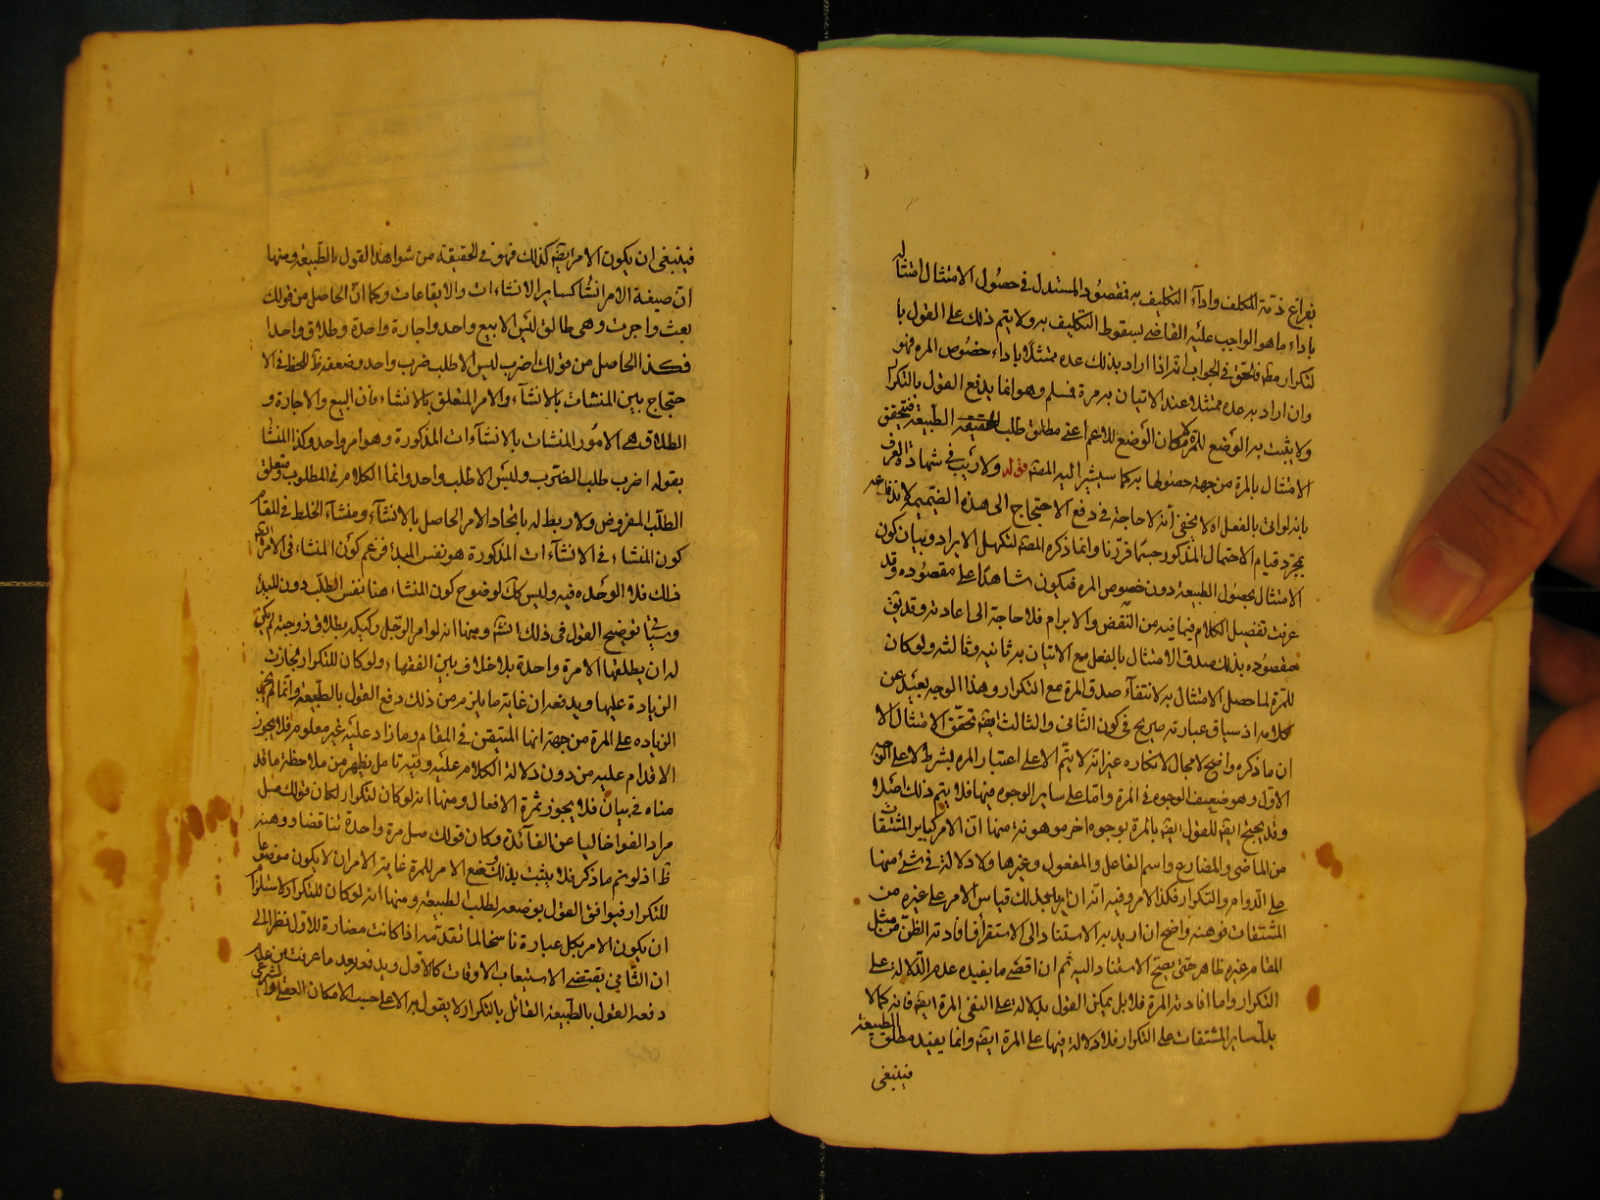 بفراغ ذمة المكلف واداء التكليف به فمقصود المستدل في حصول الامتثال امتثاله
باداء ما هو الواجب عليه القاضي بسقوط التكليف به ولا يتم ذلك على القول با
لتكرار مطلقا فالحق في الجواب انه اذا اراد بذلك عده ممتثلا باداء خصوص المره فهو
وان اراد به عده ممتثلا عند الاتيان به مرة فمسلم وهو انما يدفع القول بالتكرار
ولا يثبت به الوضع للمرة لامكان الوضع للاعم اعني مطلق طلب الطبيعة فيتحقق
الامتثال بالمرة من جهة حصولها به كما سيشير اليه المصنف قوله ولا ريب في شهادة العرف
بانه لو اتى بالفعل اه لا يخفى انه لا حاجة في دفع الاحتجاج الى هذه الضميمة لاندفاعه
بمجرد قيام الاحتمال المذكور حسبما قررنا وانما ذكره المصنف لتكميل الايراد وبيان كون
الامتثال بحصول الطبيعة دون خصوص المره فيكون شاهدا على مقصوده وقد
عرفت تفصيل الكلام فيما فيه من النقض والابرام فلا حاجة الى اعادته وقد يق
مقصوده بذلك صدق الامتثال بالفعل مع الاتيان به ثانيه وثالثه ولو كان
للمرة لما حصل الامتثال به لانتفاء صدق المرة مع التكرار وهذا الوجه بعيد عن
كلامه اذ سياق عبارته صريح في كون الثاني والثالث ايضا تحقق الامتثال الا
ان ما ذكره واضح لا مجال لانكاره غير انه لا يتم الا على اعتبار المره بشرط لا على الوجه
الاول وهو ضعيف الوجوه في المرة واما على ساير الوجوه فيها فلا يتم ذلك اصلا
وقد يحتج ايضا للقول ايضا بالمرة بوجوه اخر موهونة منها ان الامر كساير المشتقات
من الماضي والمضارع واسم الفاعل والمفعول وغيرها ولا دلالة في شئ منها
على الدوام والتكرار فكذا الامر وفيه انه ان اريد بذلك قياس الامر على غيره من
المشتقات فوهنه واضح ان اريد به الاستناد الى الاستقراء فافادته الظن من مثل
المقام غير ظاهر حتى يصح الاستناد اليه ثم ان اقصى ما يفيده عدم الدلالة على
التكرار واما افادته المرة فلا بل يمكن القول بدلالته على النفي المرة ايضا فانه كما لا
يدل ساير المشتقات على التكرار فلا دلالة فيها على المرة ايضا وانما يفيد مطلق الطبيعة
فينبغي
فينبغي ان يكون الامر ايضا كذلك فهو في الحقيقة من شواهد القول بالطبيعة ومنها
ان صيغة الامر انشاء كساير الانشاءات والايقاعات وكما ان الحاصل من قولك
بعت واجرت وهي طالق ليس الا بيع واحد واجارة واحدة وطلاق واحد
فكذا الحاصل من قولك اضرب ليس الا طلب ضرب واحد وضعفه ظ للخلط في الا
حتجاج بين المنشات بالانشاء والامر المتعلق بالانشاء فان البيع والاجارة و
الطلاق هي الامور المنشات بالانشاءات المذكورة وهو امر واحد وكذا المنشأ
بقوله اضرب طلب الضرب وليس الا طلب واحد وانما الكلام في المطلوب ومتعلق
الطلب المفروض ولا ربط له باتحاد الامر الحاصل بالانشاء ومنشأ الخلط في المقام
كون المنشاء في الانشاءات المذكورة هو نفس المبدء فزعم كون المنشاء في الامر ايضا
ذلك فلا الوحده فيه وليس كك لوضوح كون المنشاء هنا نفس الطلب دون المبدء
وسياتي توضيح القول في ذلك انش ومنها انه لو امر الرجل وكيله بطلاق زوجته لم يكن
له ان يطلقها الا مرة واحدة بلا خلاف بين الفقهاء ولو كان للتكرار لجازت
الزيادة عليها ويدفعه ان غاية ما يلزم من ذلك دفع القول بالطبيعة وانما لم يجز
الزيادة على المرة من جهة انها المتيقن في المقام وما زاد عليه غير معلوم فلا يجوز
الاقدام عليه من دون دلالة الكلام عليه وفيه تامل يظهر من ملاحظة ما قد
مناه في بيان فلا يجوز ثمرة الافعال ومنها انه لو كان للتكرار لكان قولك صل
مرارا لغوا خاليا عن الفائدة وكان قولك صل مرة واحدة تناقضا ووهنه
ظ اذ لو تم ما ذكر فلا يثبت بذلك وضع الامر للمرة غاية الامر ان لا يكون موضوعا
للتكرار فيوافق القول بوضعه لطلب الطبيعة ومنها انه لو كان للتكرار لاستلزم
ان يكون الامر بكل عبارة ناسخا لما تقدمه اذا كانت مضادة للاول نظرا الى
ان الثاني يقتضي الاستيعاب الاوقات كالاول ويدفعه بعد ما عرفت من عدم
دفعه القول بالطبيعة القائل بالتكرار لا يقول به الا على حسب الامكان العقلي والشرعي